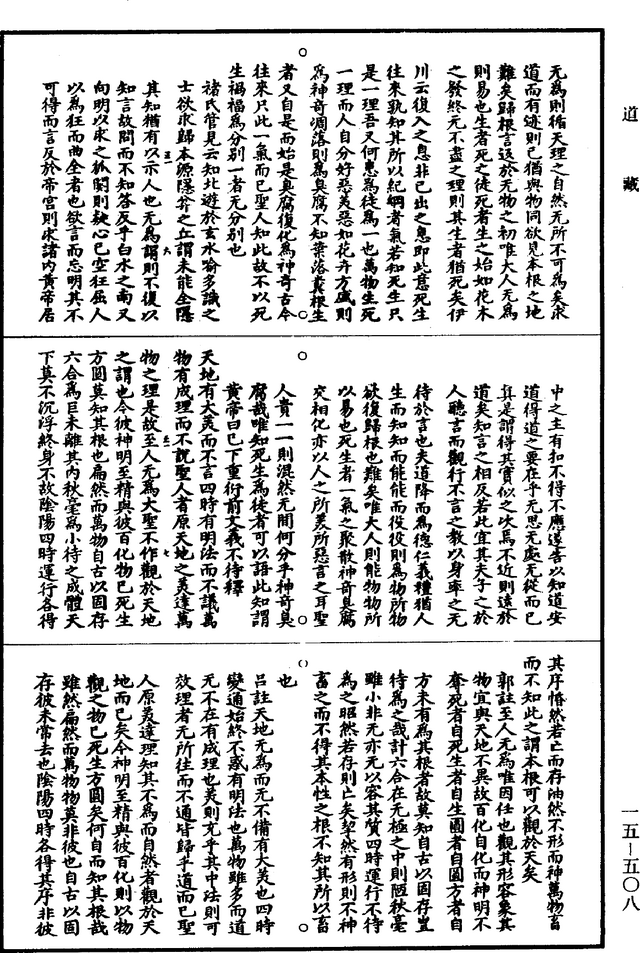 道藏
无為則循天理之自然无所不可為矣求
道而有迹則已猶與物同欲見本根之地
難矣歸根言返於无物之初唯大人无為
則易也生者死之徒死者生之始如花木
之發終无不盡之理則其生者猶死矣伊
川云復入之息非已出之息即此意死生
往來孰知其所以紀綱者氣若知死生只
是一理吾又何患為徒為一也萬物生死
一理而人自分好惡美惡如花卉方盛則
為神奇凋落則為臭腐不知葉落糞根生
者又自是而始是臭腐復化為神奇古今
往來只此一氣而已聖人知此故不以死
生禍福為分別一者无分別也
褚氏管見云知北遊於玄水喻多識之
士欲求歸本源隱弅之丘謂未能全隱
其知猶有以示人也无為謂則不復以
知言故問而不知荅反乎白水之南又
向明以求之狐闋則疑心已空狂屈人
以為狂而曲全者也欲言而忘明其不
可得而言反於帝宮則求諸内黃帝居
中之主有扣不得不應遂告以知道安
道得道之要在乎无思无處无從而已
真是謂得其實似之次焉不近則遠於
道矣知言之相反若此宜其夫子之於
人聽言而觀行不言之教以身率之无
待於言也夫道降而為德仁義禮猶人
生而知知而能能而役役則為物所物
欲復歸根也難矣唯大人則能物物所
以易也死生者一氣之聚散神奇臭腐
交相化亦以人之所美所惡言之耳聖
人貴一一則混然无間何分乎神奇臭
腐哉唯知死生為徒者可以語此知謂
黃帝曰已下重衍前文義不待釋
天地有大美而不言四時有明法而不議萬
物有成理而不說聖人者原天地之美達萬
物之理是故至人无為大聖不作觀於天地
之謂也今彼神明至精與彼百化物已死生
方圓莫知其根也扁然而萬物自古以固存
六合為巨未離其內秋毫為小待之成體天
下莫不沉浮終身不故陰陽四時運行各得
其序惛然若亡而存油然不形而神萬物畜
而不知此之謂本根可以觀於天矣
郭註至人无為唯因任也觀其形容象其
物宜與天地不異故百化自化而神明不
奪死者自死生者自生圓者自圓方者自
方未有為其根者故莫知自古以固存豈
待為之哉計六合在无極之中則陋秋毫
雖小非无亦无以容其質四時運行不待
為之昭然若存則亡矣挈然有形則不神
畜之而不得其本性之根不知其所以畜
也
吕註天地无為而无不備有大美也四時
變通始終不忒有明法也萬物雖多而道
无不在有成理也美則充乎其中法則可
效理者无所往而不通皆歸乎道而已聖
人原美達理知其不為而自然者觀於天
地而已矣今神明至精與彼百化則以物
觀之物已死生方圓矣何自而知其根哉
雖然扁然而萬物物莫非彼也自古以固
存彼未常去也陰陽四時各得其序非彼
一五—五〇八